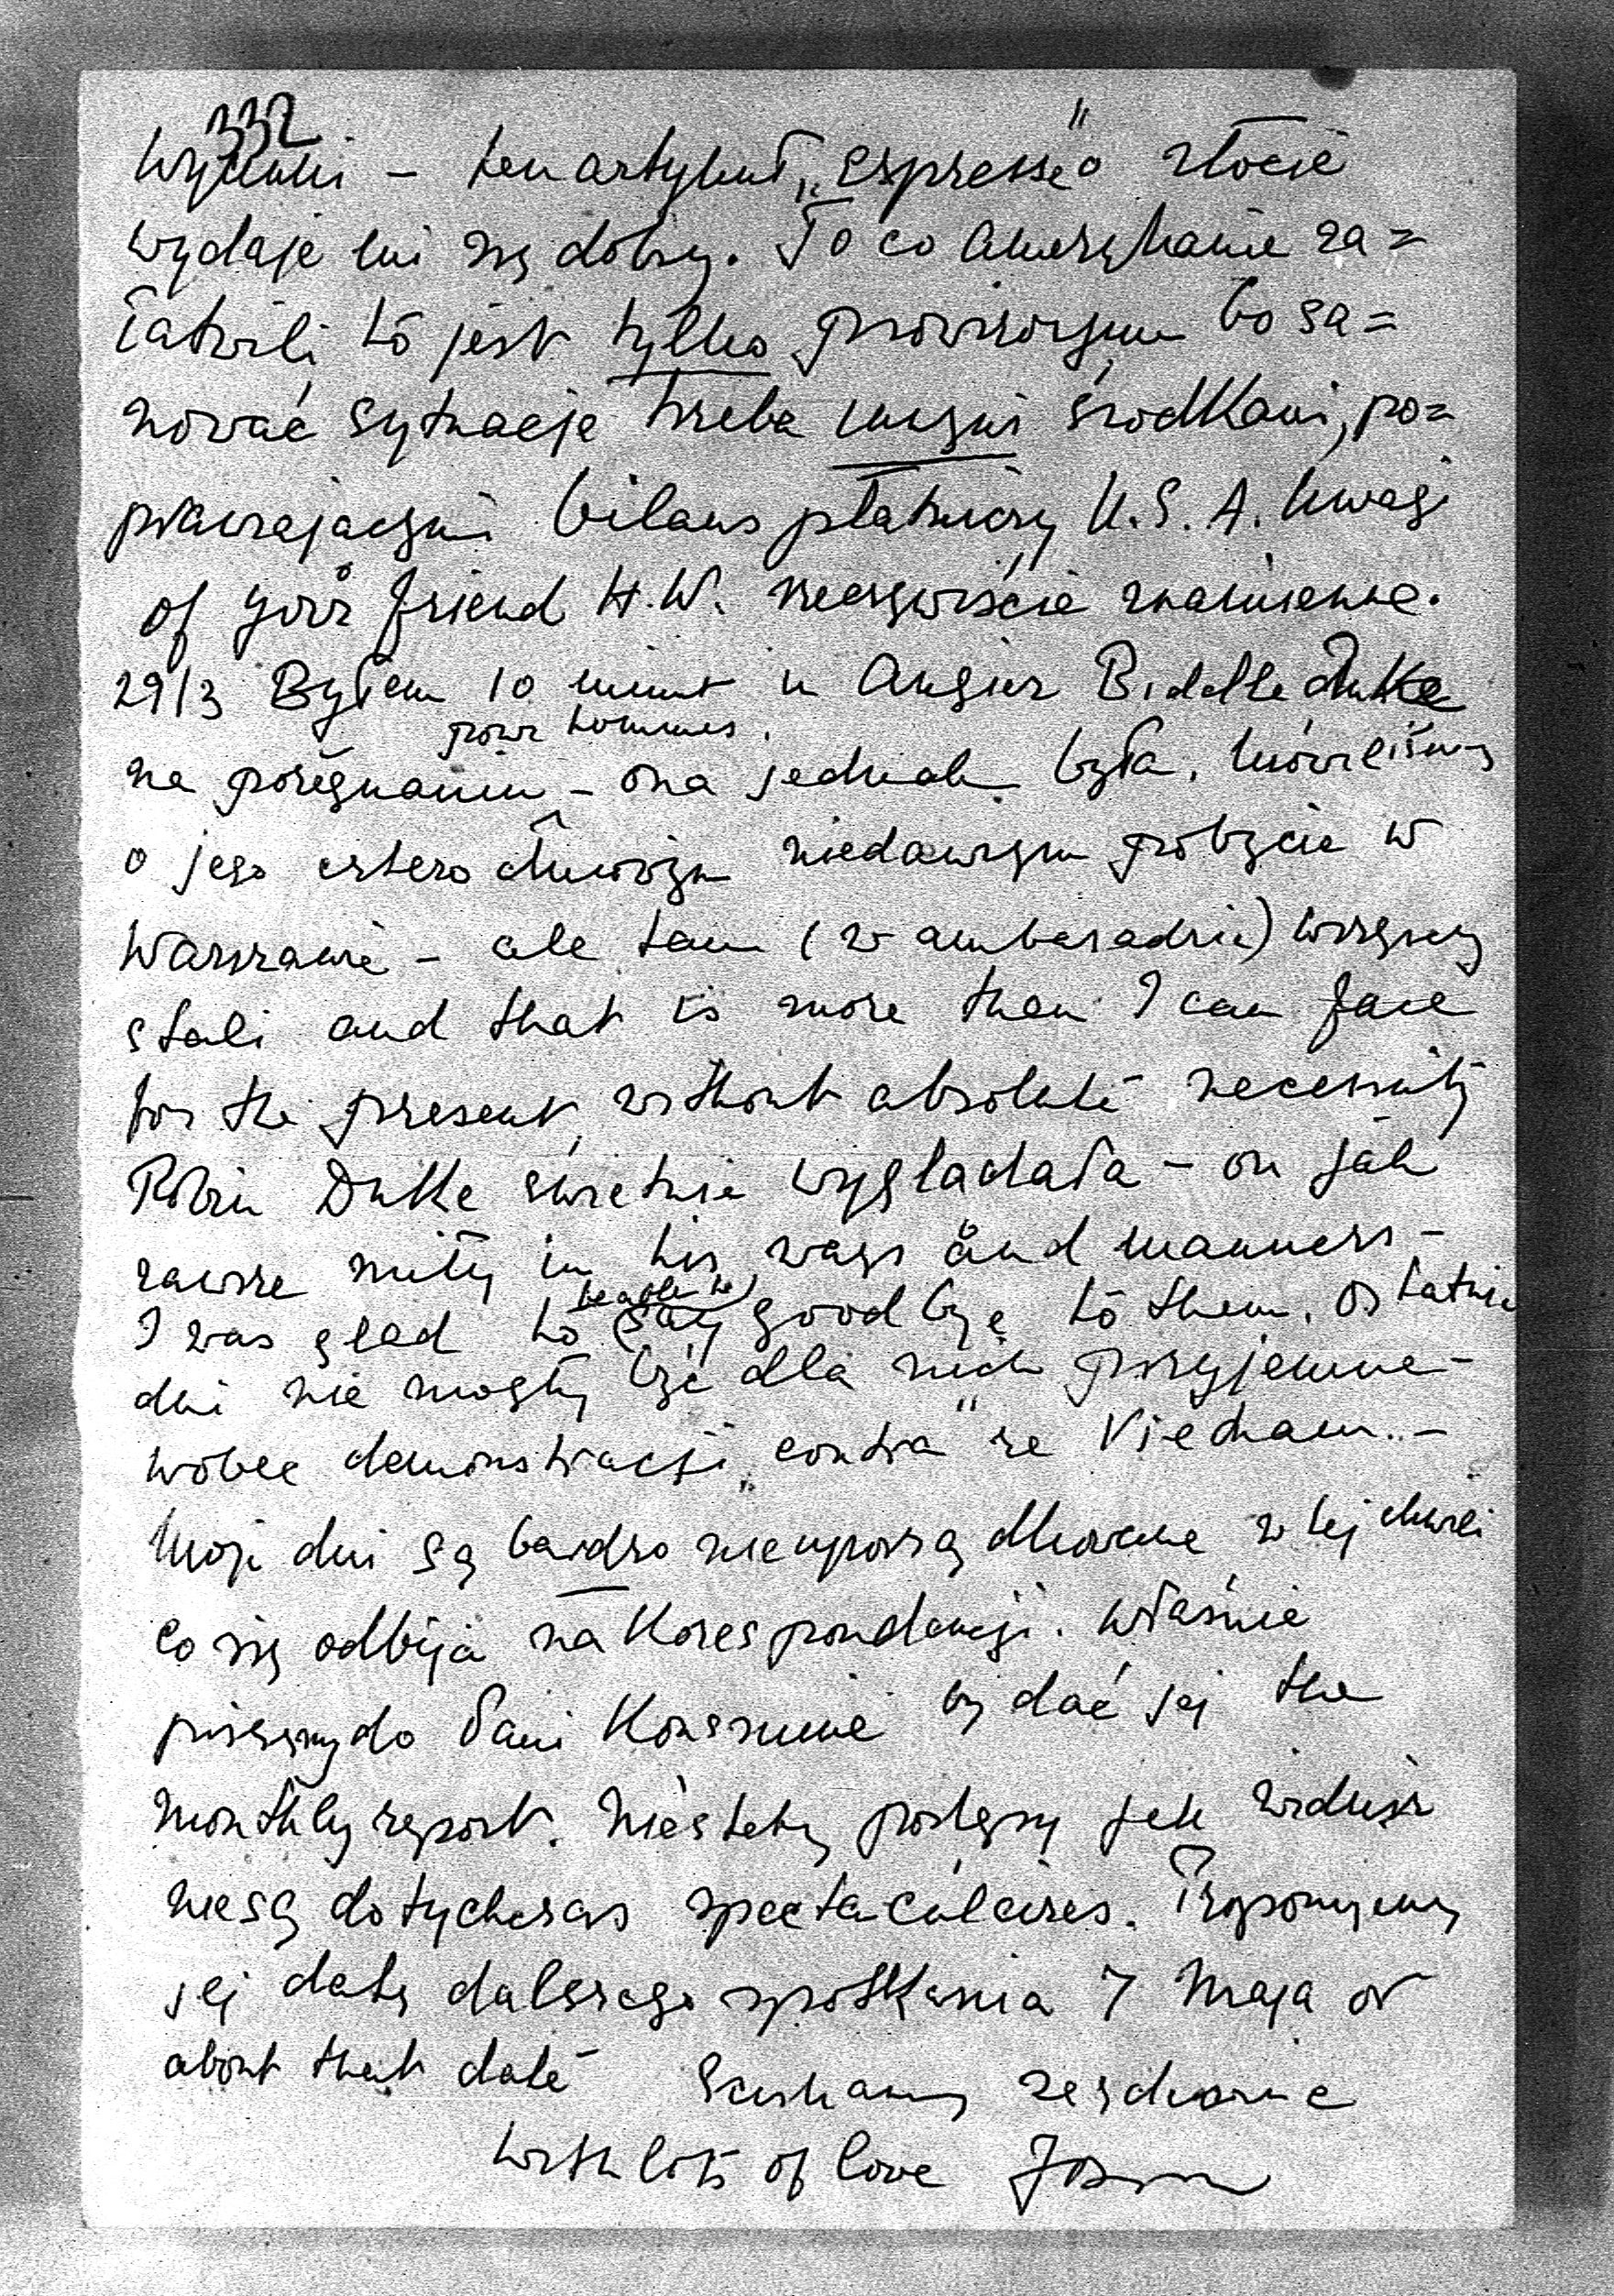 332
wycinki – ten artykuł „Espresso" o złocie
wydaje mi się dobry. To co Amerykanie za=
łatwili to jest tylko prowizorium bo sa=
nować sytuację trzeba innymi środkami, po=
prawiającymi bilans płatniczy U.S.A. Uwagi
of your friend H.W. rzeczywiście znamienne.
29/3 Byłem 10 minut u Angier Biddle Duke
pour hommes.
na pożegnaniu – ona jednak była. Mówiliśmy
o jego czterodniowym niedawnym pobycie w
Warszawie – ale tam (w ambasadzie) wszyscy
stali and that is more than I can face
for the present, without absolute necessity
Robin Duke świetnie wyglądała – on jak
zawsze miły in his ways and manners –
be able to
I was glad to say goodbye to them. Ostatnie
dni nie mogły być dla nich przyjemne –
wobec demonstracji „contra" re Vietnam. –
Moje dni są bardzo nieuporządkowane w tej chwili
co się odbija na korespondencji. Właśnie
piszemy do Pani by dać jej the
monthly report. Niestety postępy jak widzisz
nie są dotychczas spectaculaires. Proponujemy
jej datę dalszego spotkania 7 Maja or
about that date Ściskamy
with lots of love